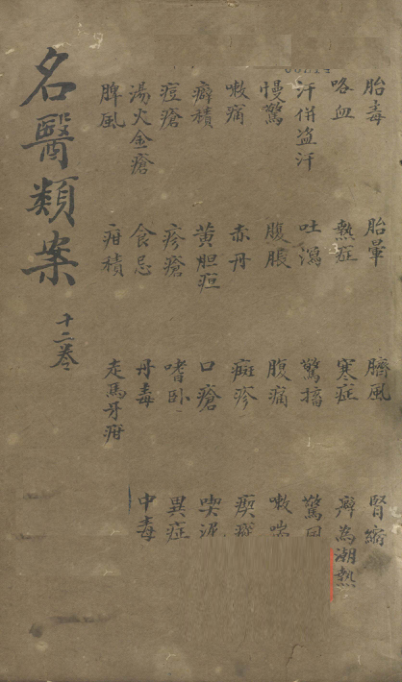 胎毒 胎暈 臍風 腎縮
咯血 熱症 寒症 為潮熱
汗併盜汗 吐瀉 驚搐 驚
慢驚 腹脹 腹痛 嗽喘
嗽痛 赤丹 癍疹
癖積 黃胆疸 口瘡 喫泥
痘瘡 疹瘡 嗜卧 異症
湯火金瘡 食忌 丹毒 中毒
脾風 疳積 走馬牙疳
名醫類案 十二卷